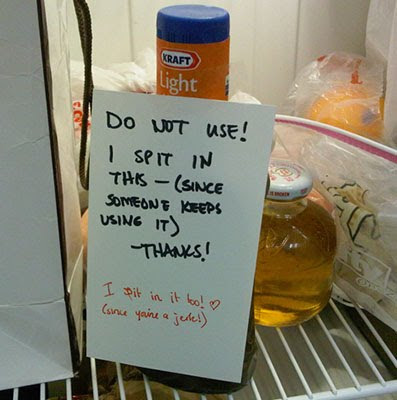 KRAFT
Light
DO NOT USE!
I SPIT IN
THIS – (SINCE
SOMEONE KEEPS
USING IT)
–THANKS!
I spit in it too! ♡
(since you're a jerk!)